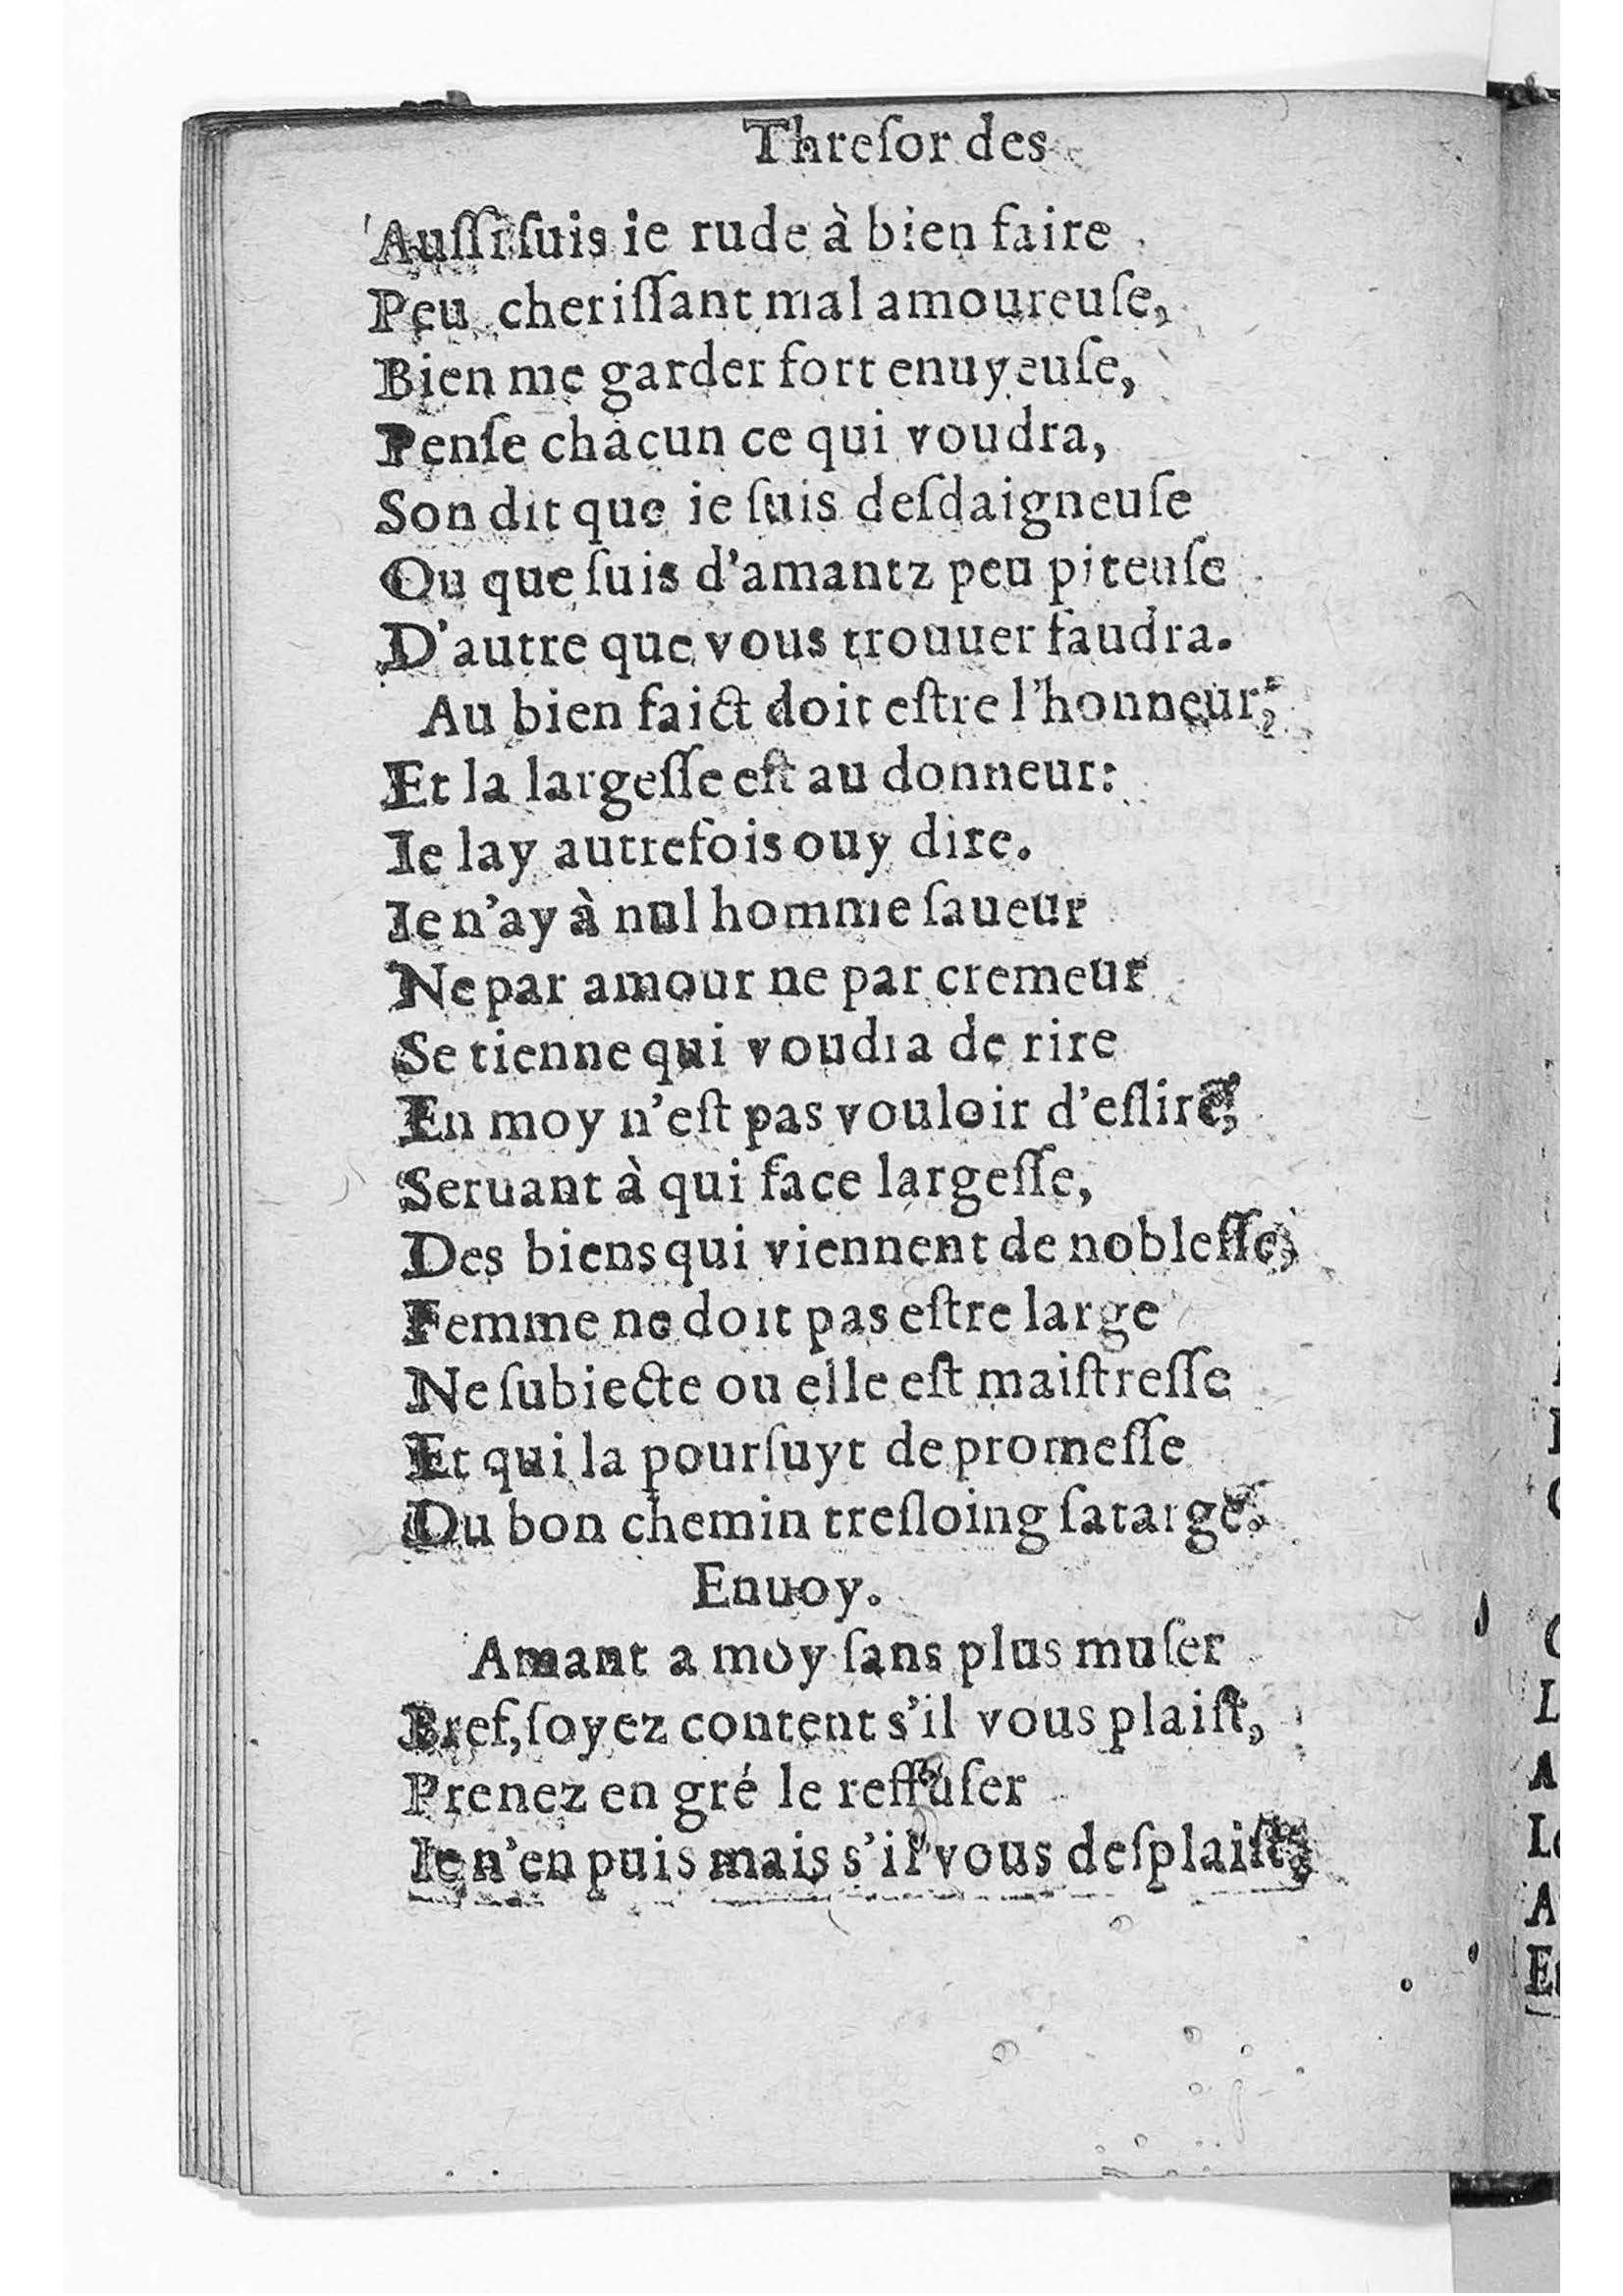 Threſor des
Auſſi ſuis ie rude à bien faire
Peu cheriſſant mal amoureuſe,
Bien me garder fort enuyeuſe,
Penſe chacun ce qui voudra,
Son dit que ie ſuis deſdaigneuſe
Ou que ſuis d'amantz peu piteuſe
D'autre que vous trouuer faudra.
Au bien faict doit eſtre l'honneur,
Et la largeſſe eſt au donneur:
Ie lay autrefois ouy dire.
Ie n'ay à nul homme ſaueur
Ne par amour ne par cremeur
Se tienne qui voudra de rire
En moy n'eſt pas vouloir d'eſlire,
Seruant à qui face largeſſe,
Des biens qui viennent de nobleſſe,
Femme ne doit pas eſtre large
Ne ſubiecte ou elle eſt maiſtreſſe
Et qui la pourſuyt de promeſſe
Du bon chemin treſloing ſatarge.
Enuoy.
Amant a moy ſans plus muſer
Bref, ſoyez content s'il vous plaiſt,
Prenez en gré le reffuſer
Ie n'en puis mais s'il vous deſplaiſt,